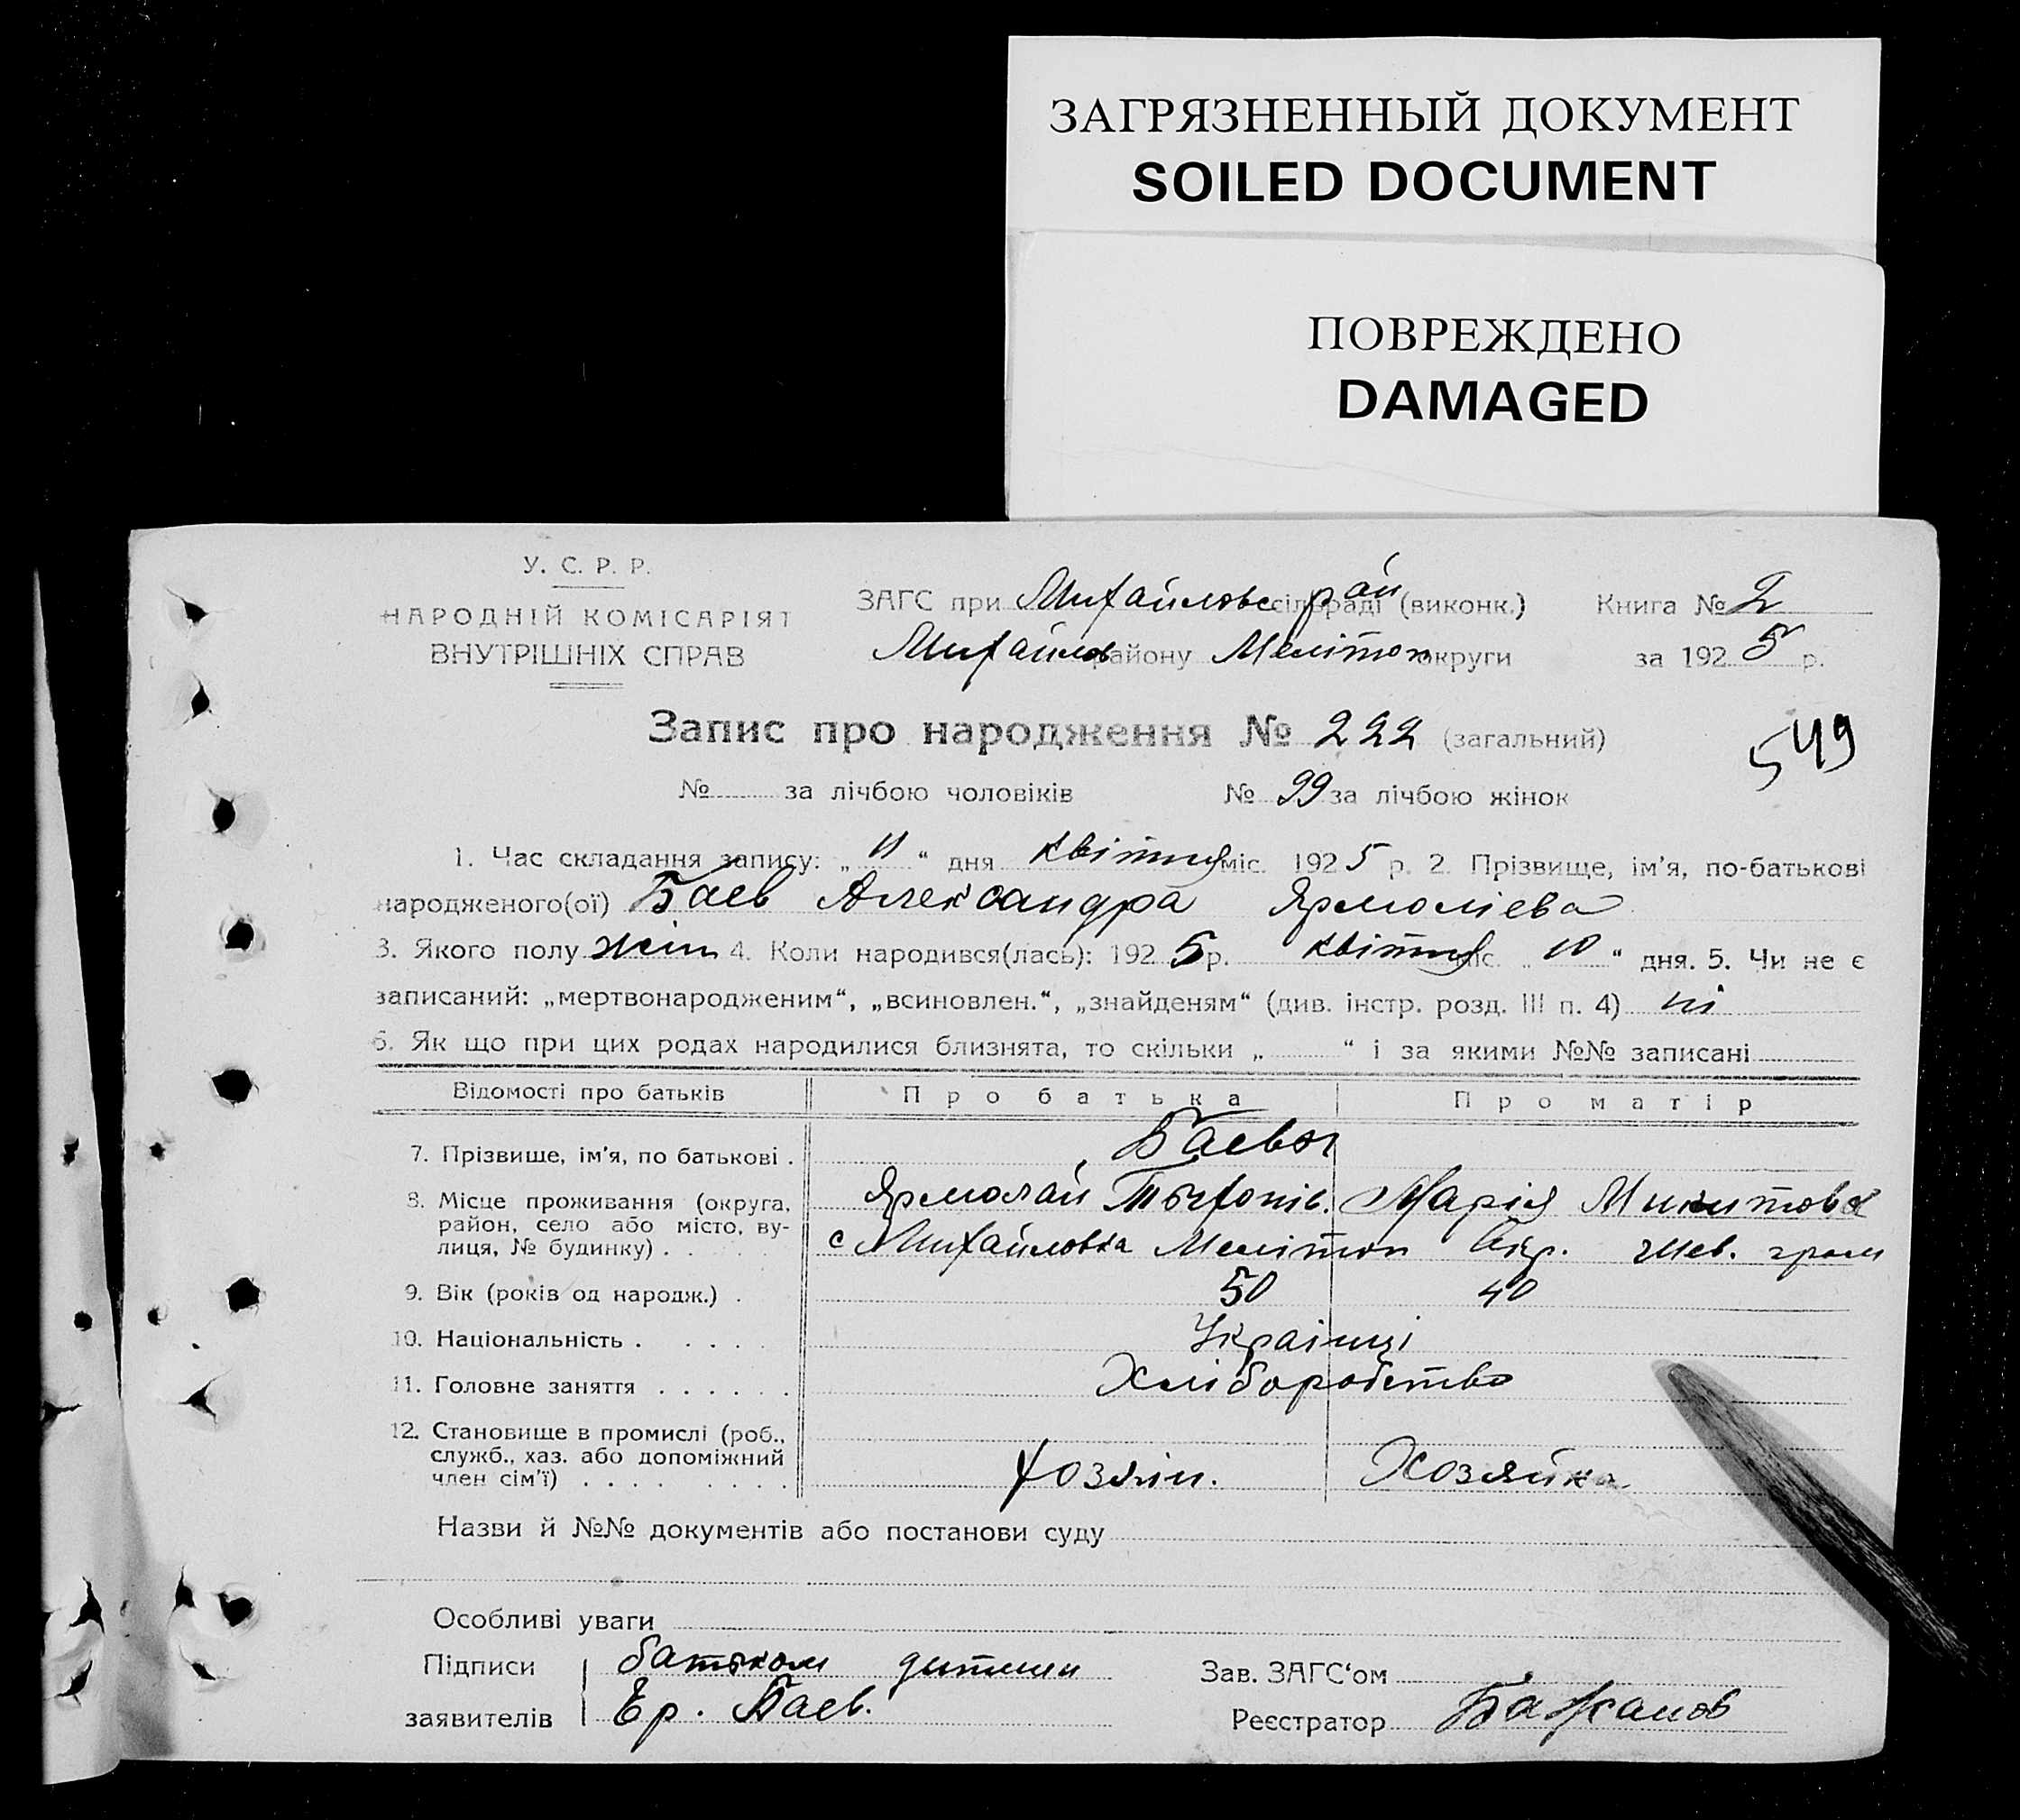 ЗАГРЯЗНЕННЫЙ ДОКУМЕНТ
SOILED DOCUMENT
ПОВРЕЖДЕНО
DAMAGED
У. С. Р. Р.
НАРОДНІЙ КОМІСАРІЯТ
ВНУТРІШНІХ СПРАВ
ЗАГС при Михайловс рай сільраді (виконк.) Книга № 2
Михайлов району Мелітоп округи за 1925 р.
Запис про народження № 222 (загальний)
549
№ за лічбою чоловіків № 99 за лічбою жінок
1. Час складання запису: „ 11 “ дня квітня міс. 1925 р. 2. Прізвище, ім’я, по-батькові
народженого(ої) Баев Александра Ярмоліева
3. Якого полу жін 4. Коли народився(лась): 1925 р. квітня міс. „ 10 “ дня. 5. Чи не є
записаний: „мертвонародженим“, „всиновлен.“, „знайденям“ (див. інстр. розд. III п. 4) ні
6. Як що при цих родах народилися близнята, то скільки „ “ і за якими №№ записані
Відомості про батьків Про батька Про матір
7. Прізвище, ім’я, по батькові . Баевы
Ярмолай Марія Микитова
8. Місце проживання (округа, район, село або місто, вулиця, № будинку) . . с Михайловка Мелітоп Окр. Шев. грам
9. Вік (років од народж.) . 50 40
10. Національність . . . . . Українці
11. Головне заняття . . . . . . Хліборобство
12. Становище в промислі (роб., служб., хаз. або допоміжний член сім’ї) . . . . . . . . хозяін. Хозяйка
Назви й №№ документів або постанови суду
Особливі уваги
Підписи батьком дитини Зав. ЗАГС‘ом
заявителів Ер. Баев. Реєстратор Бажанов